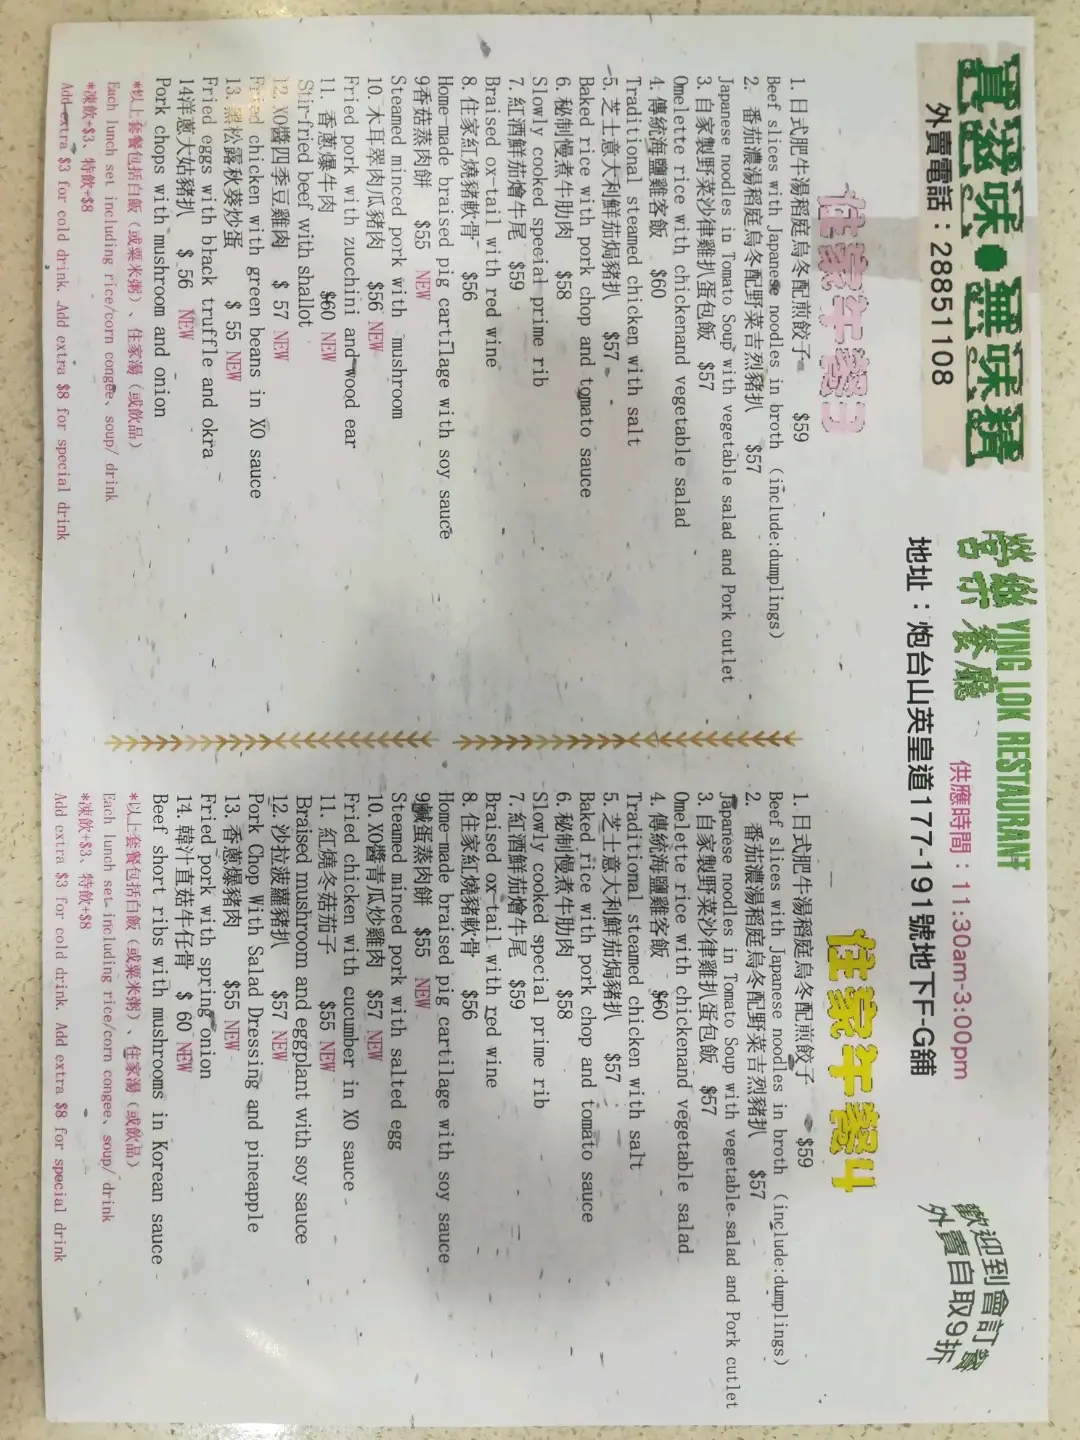 真滋味●無味精
外賣電話：28851108
營樂餐廳
YING LOK RESTAURANT
供應時間：11:30am-3:00pm
地址：炮台山英皇道177-191號地下F-G舖
歡迎到會訂餐
外賣自取9折
住家午餐3
1. 日式肥牛湯稻庭烏冬配煎餃子 $59
Beef slices with Japanese noodles in broth (include:dumplings)
2. 番茄濃湯稻庭烏冬配野菜吉烈豬扒 $57
Japanese noodles in Tomato Soup with vegetable salad and Pork cutlet
3. 自家製野菜沙律雞扒蛋包飯 $57
Omelette rice with chickenand vegetable salad
4. 傳統海鹽雞客飯 $60
Traditional steamed chicken with salt
5. 芝士意大利鮮茄焗豬扒 $57
Baked rice with pork chop and tomato sauce
6. 秘制慢煮牛肋肉 $58
Slowly cooked special prime rib
7. 紅酒鮮茄燴牛尾 $59
Braised ox-tail with red wine
8. 住家紅燒豬軟骨 $56
Home-made braised pig cartilage with soy sauce
9香菇蒸肉餅 $55 NEW
Steamed minced pork with mushroom
10. 木耳翠肉瓜豬肉 $56 NEW
Fried pork with zucchini and wood ear
11. 香蔥爆牛肉 $60 NEW
Stir-fried beef with shallot
12. XO醬四季豆雞肉 $ 57 NEW
Fried chicken with green beans in XO sauce
13. 黑松露秋葵炒蛋 $ 55 NEW
Fried eggs with brack truffle and okra
14洋蔥大姑豬扒 $ 56 NEW
Pork chops with mushroom and onion
*以上套餐包括白飯（或粟米粥）、住家湯（或飲品）
Each lunch set including rice/corn congee、soup/ drink
*凍飲+$3、特飲+$8
Add extra $3 for cold drink. Add extra $8 for special drink
住家午餐4
1. 日式肥牛湯稻庭烏冬配煎餃子 $59
Beef slices with Japanese noodles in broth (include:dumplings)
2. 番茄濃湯稻庭烏冬配野菜吉烈豬扒 $57
Japanese noodles in Tomato Soup with vegetable salad and Pork cutlet
3. 自家製野菜沙律雞扒蛋包飯 $57
Omelette rice with chickenand vegetable salad
4. 傳統海鹽雞客飯 $60
Traditional steamed chicken with salt
5. 芝士意大利鮮茄焗豬扒 $57
Baked rice with pork chop and tomato sauce
6. 秘制慢煮牛肋肉 $58
Slowly cooked special prime rib
7. 紅酒鮮茄燴牛尾 $59
Braised ox-tail with red wine
8. 住家紅燒豬軟骨 $56
Home-made braised pig cartilage with soy sauce
9鹹蛋蒸肉餅 $55 NEW
Steamed minced pork with salted egg
10. XO醬青瓜炒雞肉 $57 NEW
Fried chicken with cucumber in XO sauce
11. 紅燒冬菇茄子 $55 NEW
Braised mushroom and eggplant with soy sauce
12. 沙拉菠蘿豬扒 $57 NEW
Pork Chop With Salad Dressing and pineapple
13. 香蔥爆豬肉 $55 NEW
Fried pork with spring onion
14. 韓汁直菇牛仔骨 $ 60 NEW
Beef short ribs with mushrooms in Korean sauce
*以上套餐包括白飯（或粟米粥）、住家湯（或飲品）
Each lunch set including rice/corn congee、soup/ drink
*凍飲+$3、特飲+$8
Add extra $3 for cold drink. Add extra $8 for special drink